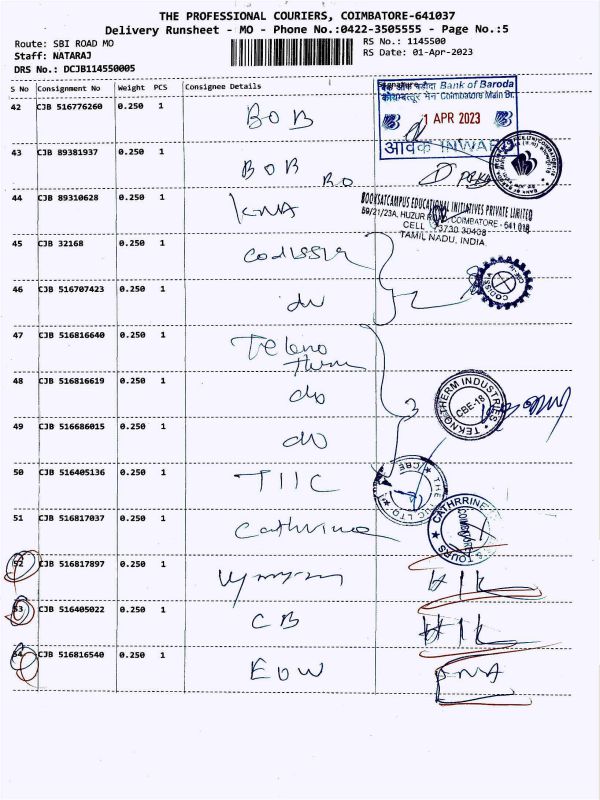 THE PROFESSIONAL COURIERS, COIMBATORE-641037
Delivery Runsheet - MO - Phone No.:0422-3505555 - Page No.:5
Route: SBI ROAD MO
RS No.: 1145500
Staff: NATARAJ
RS Date: 01-Apr-2023
DRS No.: DCJB114550005
S No Consignment No Weight PCS Consignee Details
42 CJB 516776260 0.250 1 BOB
बैंक ऑफ बड़ौदा Bank of Baroda
कोयम्बत्तूर मेन Coimbatore Main Br.
1 APR 2023
आवक INWARD
43 CJB 89381937 0.250 1 BOB RO
44 CJB 89310628 0.250 1 KNA
BOOKSATCAMPUS EDUCATIONAL INITIATIVES PRIVATE LIMITED
69/21/23A, HUZUR COIMBATORE - 641 018
CELL 73730 30408
TAMIL NADU, INDIA.
45 CJB 32168 0.250 1 Codissia
CODISSIA
46 CJB 516707423 0.250 1 do
47 CJB 516816640 0.250 1 Tekno
Therm
48 CJB 516816619 0.250 1 do
TEKNO THERM INDUSTRIES
CBE-18
49 CJB 516686015 0.250 1 do
50 CJB 516405136 0.250 1 TIIC
THE TIIC LTD
CBE
51 CJB 516817037 0.250 1 Cathrine
CATHRRINE & TOURS
COIMBATORE
52 CJB 516817897 0.250 1
53 CJB 516405022 0.250 1 CB
54 CJB 516816540 0.250 1 EOW